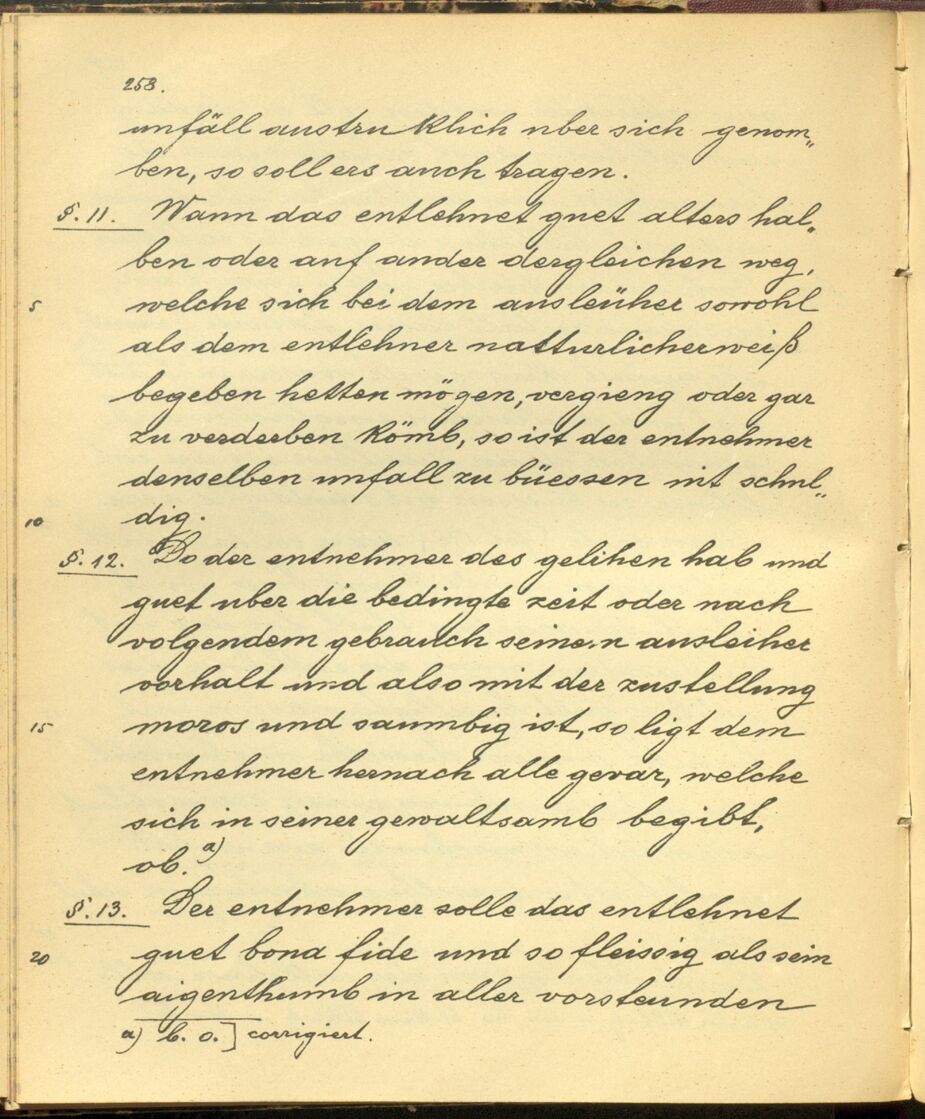 258.
unfäll austruklich uber sich genom„
ben, so soll ers auch tragen.
§. 11. Wann das entlehnet guet alters hal„
ben oder auf ander dergleichen weg,
5 welche sich bei dem ausleüher sowohl
als dem entlehner natturlicherweiß
begeben hetten mögen, vergieng oder gar
zu verderben kömb, so ist der entnehmer
denselben unfall zu büessen nit schul„
10 dig.
§. 12. Do der entnehmer des gelihen hab und
guet uber die bedingte zeit oder nach
volgendem gebrauch seinen ausleiher
vorhalt und also mit der zustellung
15 moros und saumbig ist, so ligt dem
entnehmer hernach alle gevar, welche
sich in seiner gewaltsamb begibt,
ob. a)
§. 13. Der entnehmer solle das entlehnet
20 guet bona fide und so fleissig als sein
aigenthumb in aller vorsteunden
a) b. o.] corrigiert.